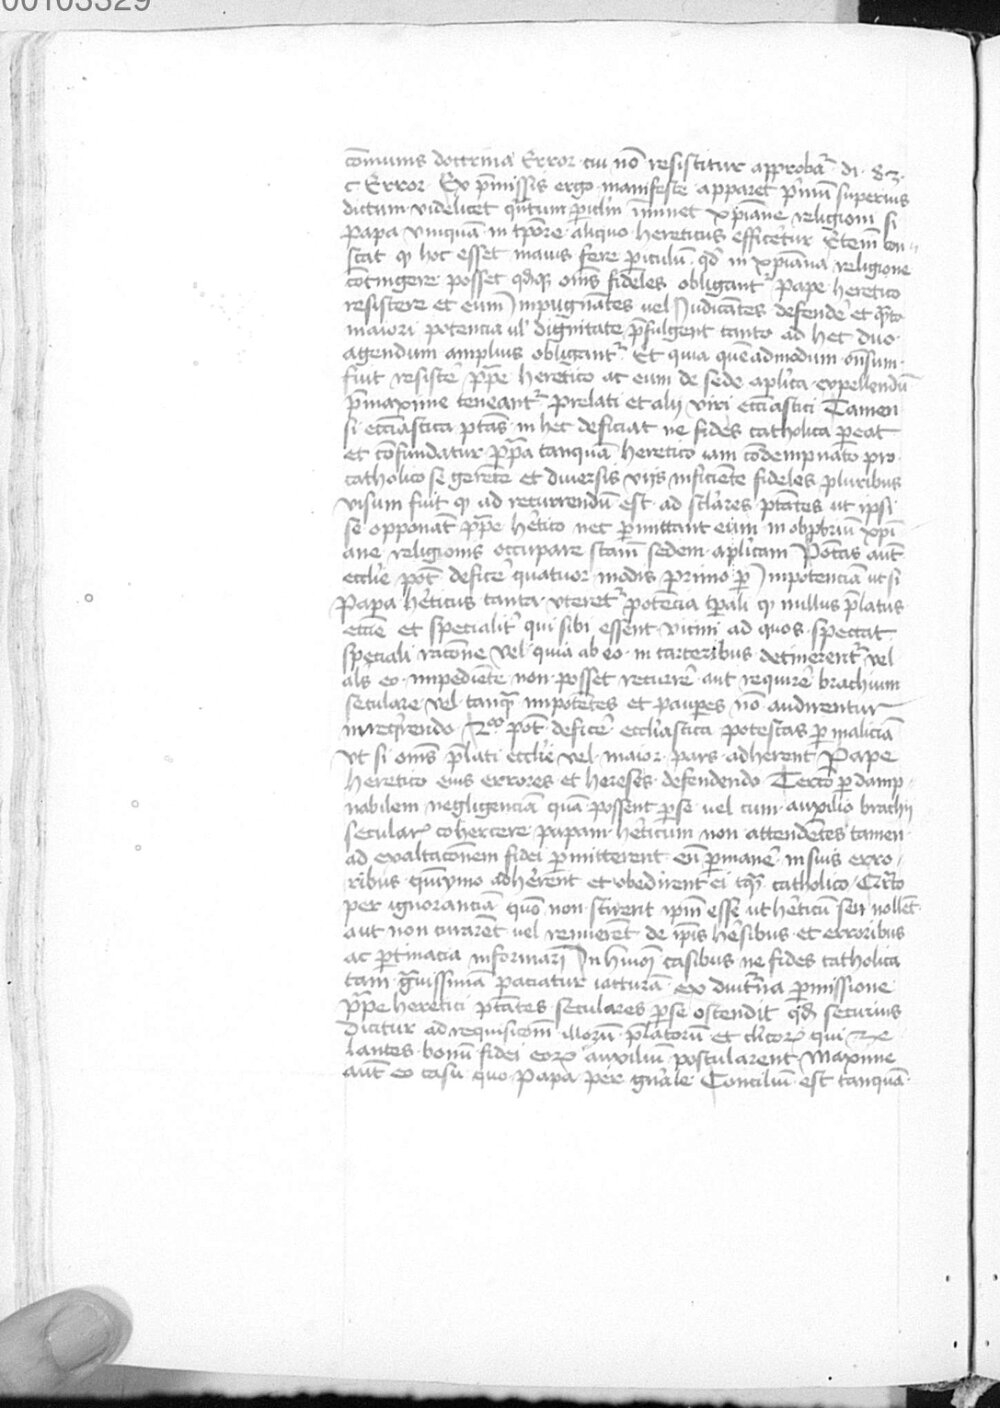 00103329
co̅munis doctrina Error cui no̅ resistitur approbat᷑ di. 83.
c Error. Ex p̅missis ergo manifeste apparet p̓mu̅ superius
dictum videlicet qu̅tum p̲iclm̅ im̅inet xp̅iane religioni si
Papa vmqua̅ in tp̅ore aliquo hereticus efficeretur Etenim con
stat q̲ hoc esset maius fere p̲iculu̅ qd̓ in xp̅iana religione
co̅tingere posset qd̓q̲ om̅s fideles obligant᷑ Pape heretico
resistere et eum Impugna̅tes vel Iudica̅tes defende̓ et qu̅to
maiori potencia ul̓ dignitate p̅fulgent tanto ad hec duo
agendum amplius obligant᷑ Et quia que̅admodum on̅sum
fuit resiste̓ p̅pe heretico ac eum de sede ap̅lica expellendu̅
p̅maxime teneant᷑ prelati et alij viri eccl̅iastici Tamen
si eccl̅iastica pt̅as in hec deficiat ne fides catholica p̲eat
et co̅fundatur p̅pa tanqua̅ heretico iam co̅dempnato pro
catholico se gere̅te et diuersis vijs inficie̅te fideles pluribus
visum fuit q̲ ad recurrendu̅ est ad scl̅ares pt̅ates ut ipsi
se opponant p̅pe he̅tico nec p̲mittant eum in obp̅briu̅ xp̅i
ane religionis occupare sc̅am sedem ap̅licam Pot̅as aut̅
eccl̅ie pot̅ defice̓ quatuor modis primo p̲ Impotencia̅ ut si
Papa he̅ticus tanta vteret᷑ potencia tp̅ali q̲ nullus p̅latus
eccl̅ie et specialit̓ qui sibi essent vicini ad quos spectat
speciali racione vel quia ab eo in carceribus detinerent᷑ vel
als̅ eo impedie̅te non posset recurre̓ aut require̓ brachium
seculare vel tanq̅ impote̅tes et paupes no̅ audirentur
in req̓rendo 2º pot̅ defice̓ eccl̅iastica potestas p̲ malicia̅
vt si om̅s p̅lati eccl̅ie vel maior pars adherent Pape
heretico eius errores et hereses defendendo Tercio p̲ damp
nabilem negligencia̅ qua̅ possent p̲ se vel cum auxilio brachij
secular᷑ cohercere papam he̅ticum non attende̅tes tamen
ad exaltacio̅nem fidei p̲mitterent eu̅ p̲mane̓ in suis erro
ribus qui̅ymo adhe̅rent et obedirent ei tq̅ catholico Q̓rto
per ignorancia̅ quo̅ non scirent ip̅m esse ut he̅ticu̅ seu nolle̅t
aut non curare̅t vel renuere̅t de ip̅is he̅sibus et erroribus
ac p̲tinacia informari In hm̅oi casibus ne fides catholica
tam g̅uissima̅ paciatur iactura̅ ex diut̓na p̲missione
p̅pe heretici pt̅ates seculares p̲ se ostendit qd̓ securius
dicitur ad requisicio̅m illoru̅ p̅latoru̅ et cl̅icor᷑ qui ze
lantes bonu̅ fidei eor᷑ auxiliu̅ postularent Maxime
aut̅ eo casu quo Papa per gn̅ale Conciliu̅ est tanqua̅